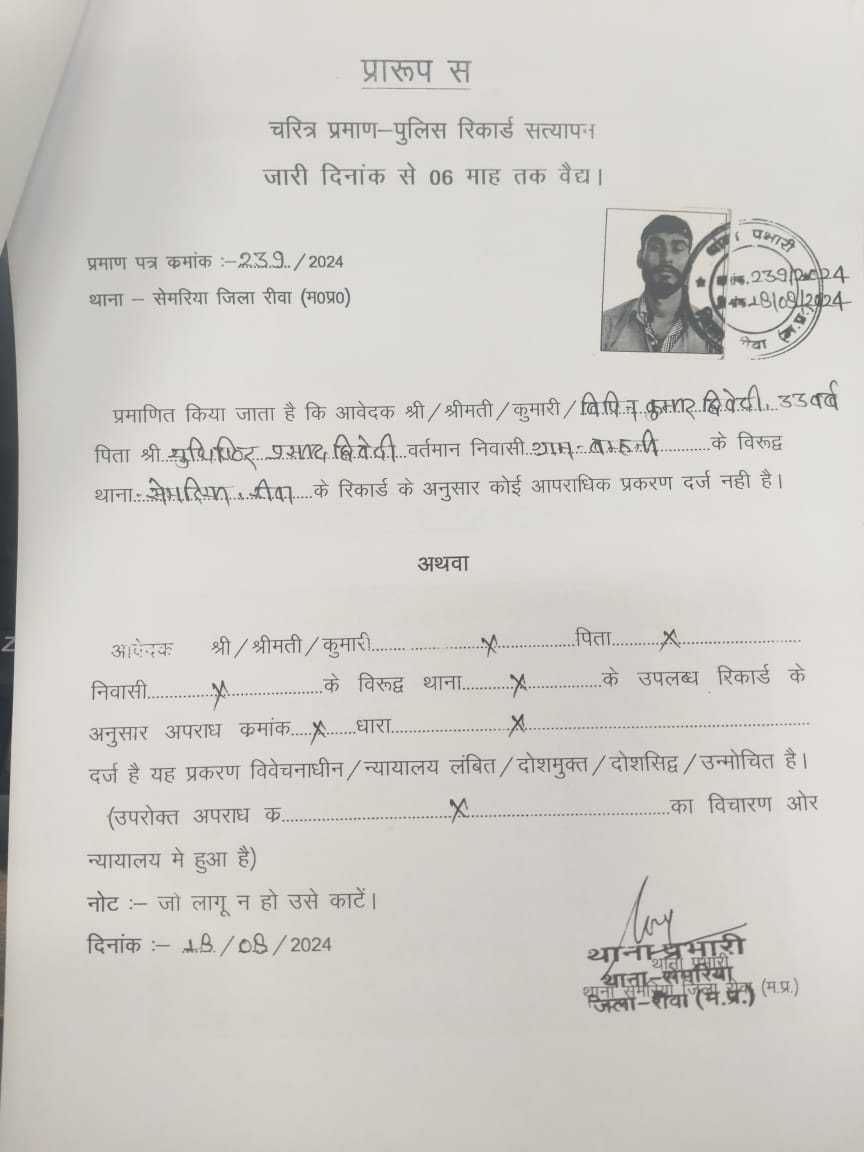 प्रारूप स
चरित्र प्रमाण–पुलिस रिकार्ड सत्यापन
जारी दिनांक से 06 माह तक वैद्य।
प्रमाण पत्र कमांक :–239/2024
थाना – सेमरिया जिला रीवा (म0प्र0)
प्रभारी
239/2024
18/08/2024
रीवा (म.प्र.)
प्रमाणित किया जाता है कि आवेदक श्री/श्रीमती/कुमारी/विपिन कुमार द्विवेदी, 33 वर्ष
पिता श्री युधिष्ठिर प्रसाद द्विवेदी वर्तमान निवासी ग्राम- के विरूद्व
थाना-सेमरिया, रीवा के रिकार्ड के अनुसार कोई आपराधिक प्रकरण दर्ज नही है।
अथवा
आवेदक श्री/श्रीमती/कुमारी.....x.....पिता.....x.....
निवासी.....x.....के विरूद्व थाना.....x.....के उपलब्ध रिकार्ड के
अनुसार अपराध कमांक.....x.....धारा.....x.....
दर्ज है यह प्रकरण विवेचनाधीन/न्यायालय लंबित/दोशमुक्त/दोशसिद्व/उन्मोचित है।
(उपरोक्त अपराध क.....x.....का विचारण ओर
न्यायालय मे हुआ है)
नोट :– जो लागू न हो उसे काटें।
दिनांक :– 18/08/2024
थाना प्रभारी
थाना-सेमरिया
जिला-रीवा (म.प्र.)
थाना प्रभारी
थाना सेमरिया जिला रीवा (म.प्र.)